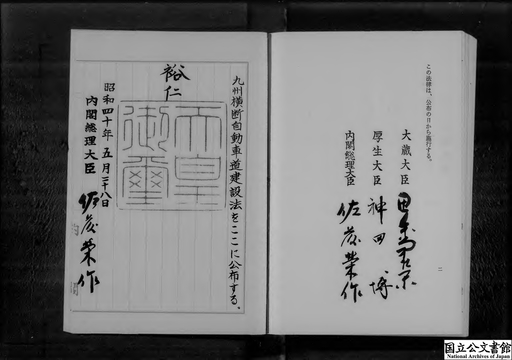 この法律は、公布の日から施行する。
大蔵大臣 田中角栄
厚生大臣 神田博
内閣総理大臣 佐藤榮作
二
九州横断自動車道建設法をここに公布する。
裕仁
天皇御璽
昭和四十年五月二十八日
内閣総理大臣 佐藤榮作
国立公文書館
National Archives of Japan